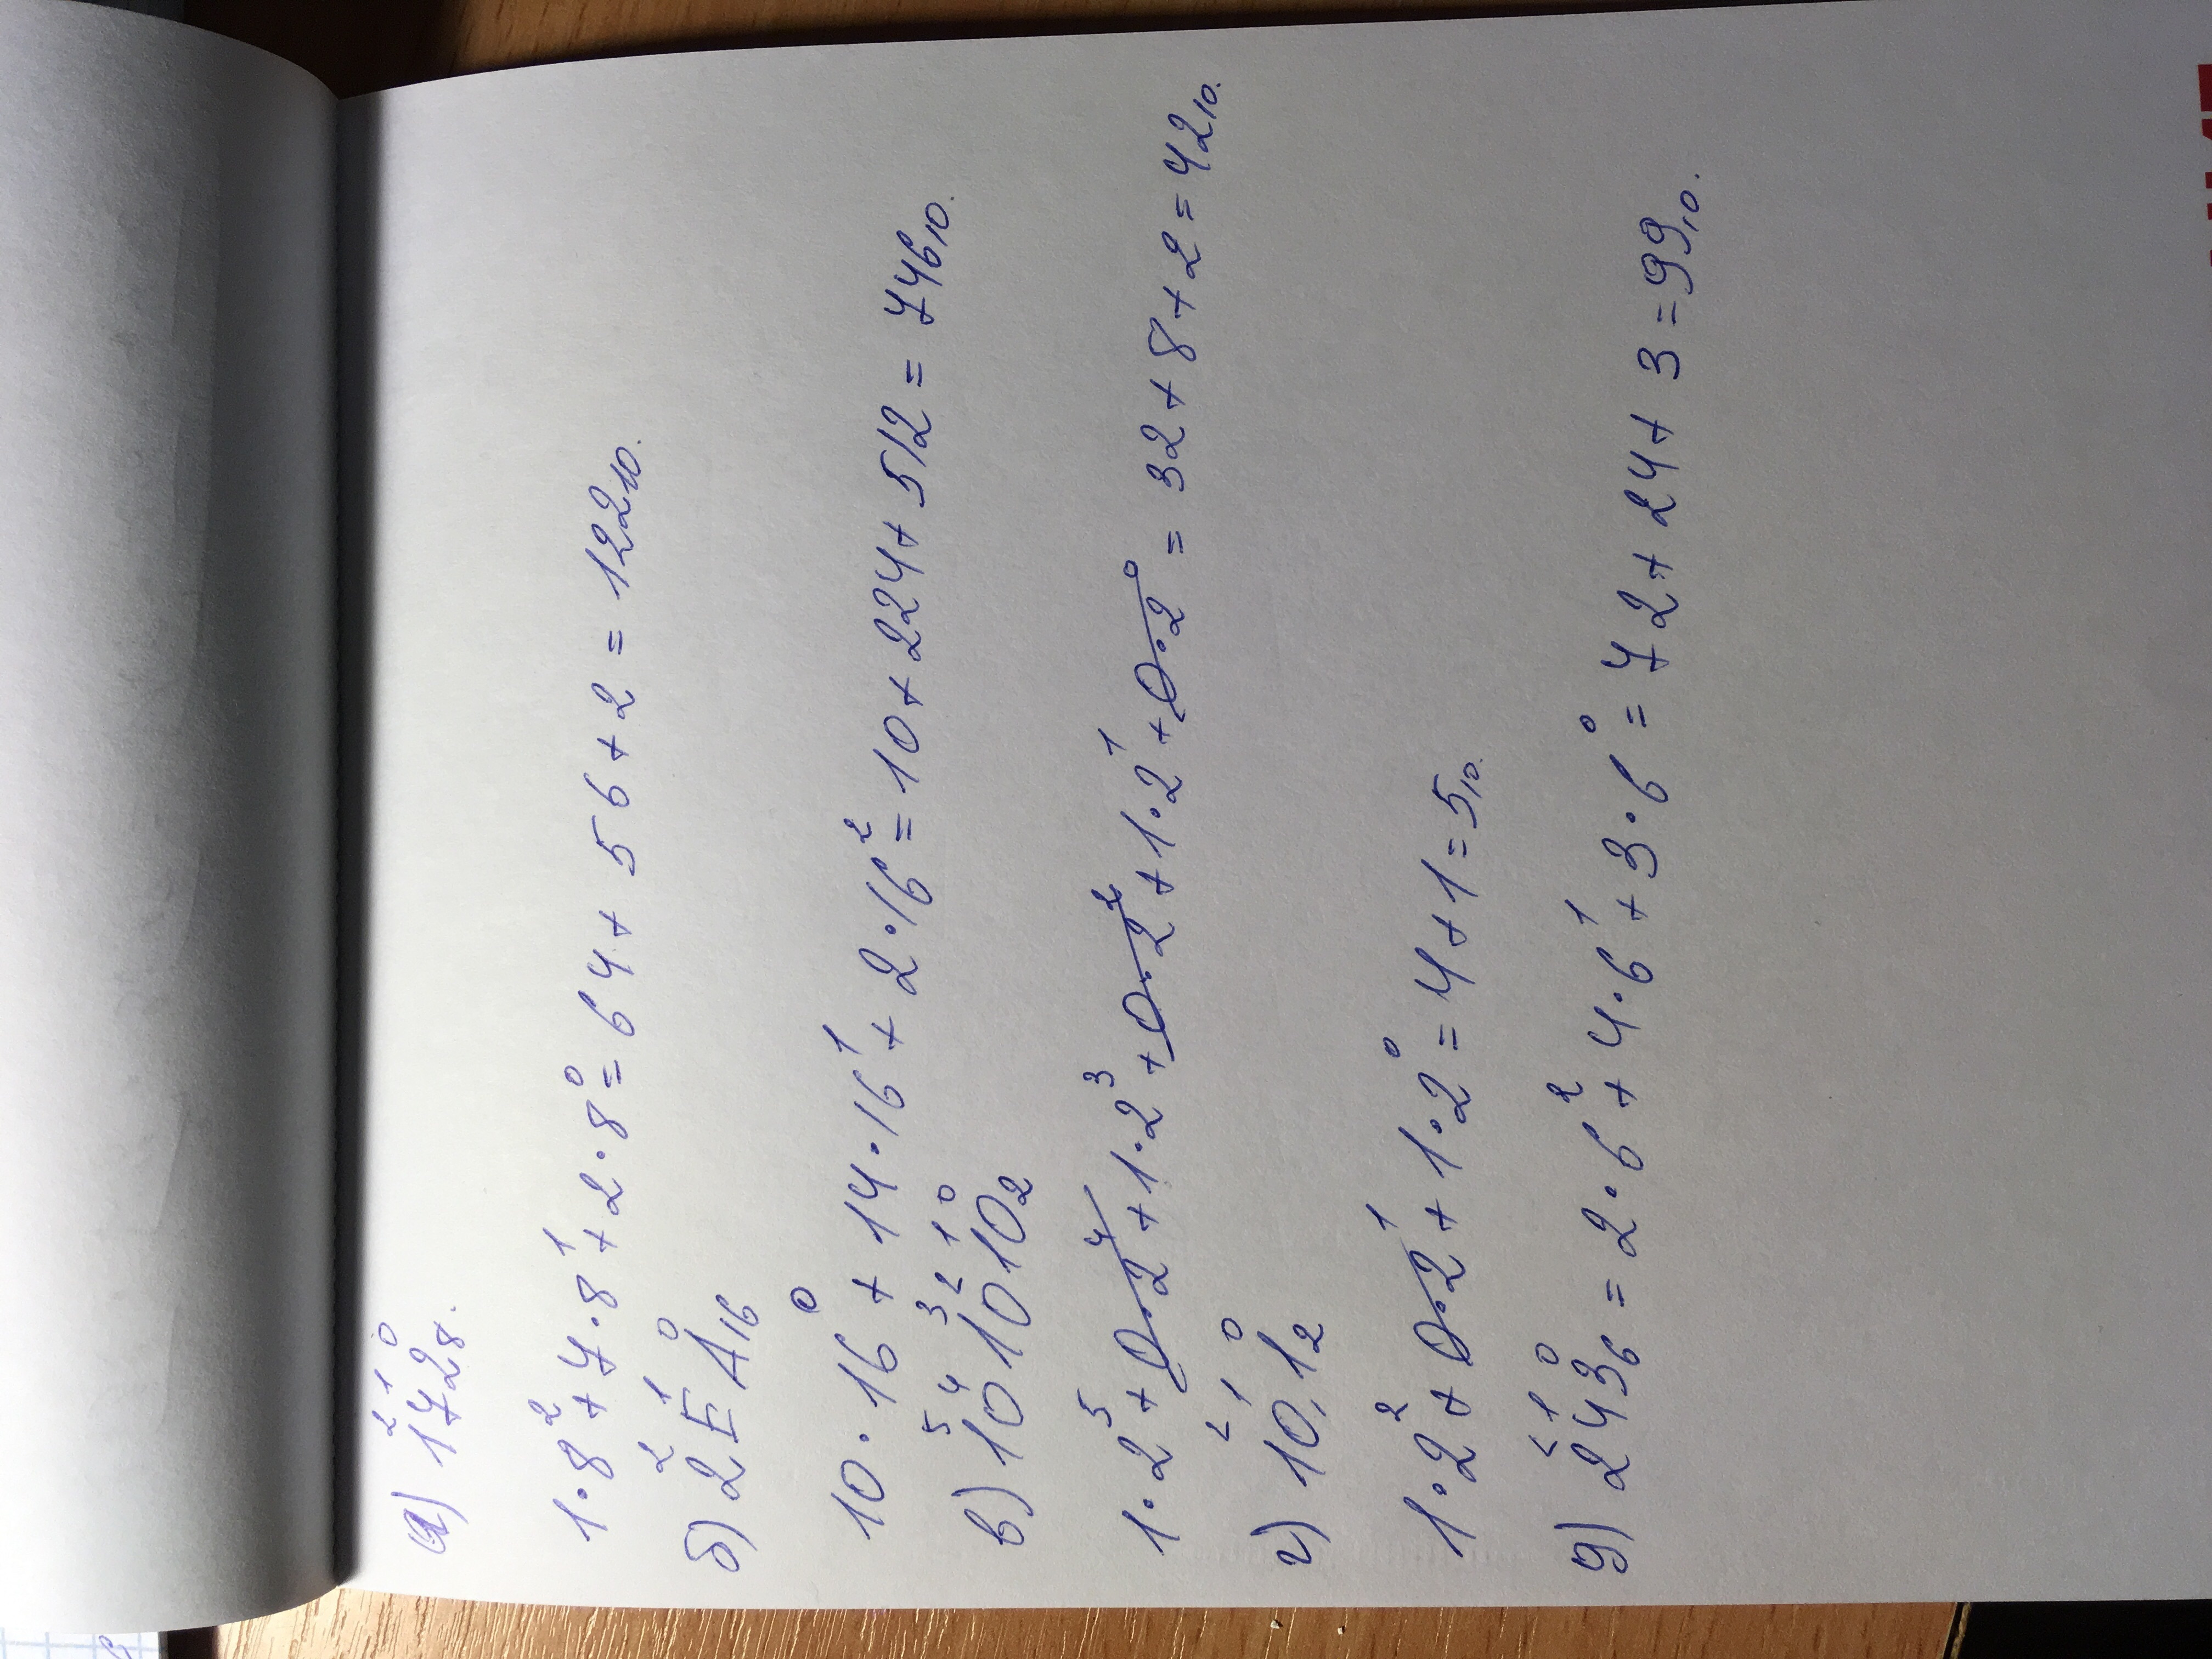 а) 172₈.
1·8²+7·8¹+2·8⁰=64+56+2=122₁₀.
б) 2EA₁₆
10·16⁰+14·16¹+2·16²=10+224+512=746₁₀.
в) 101010₂
1·2⁵+0·2⁴+1·2³+0·2²+1·2¹+0·2⁰=32+8+2=42₁₀.
г) 10,1₂
1·2²+0·2¹+1·2⁰=4+1=5₁₀.
д) 243₆=2·6²+4·6¹+3·6⁰=72+24+3=99₁₀.